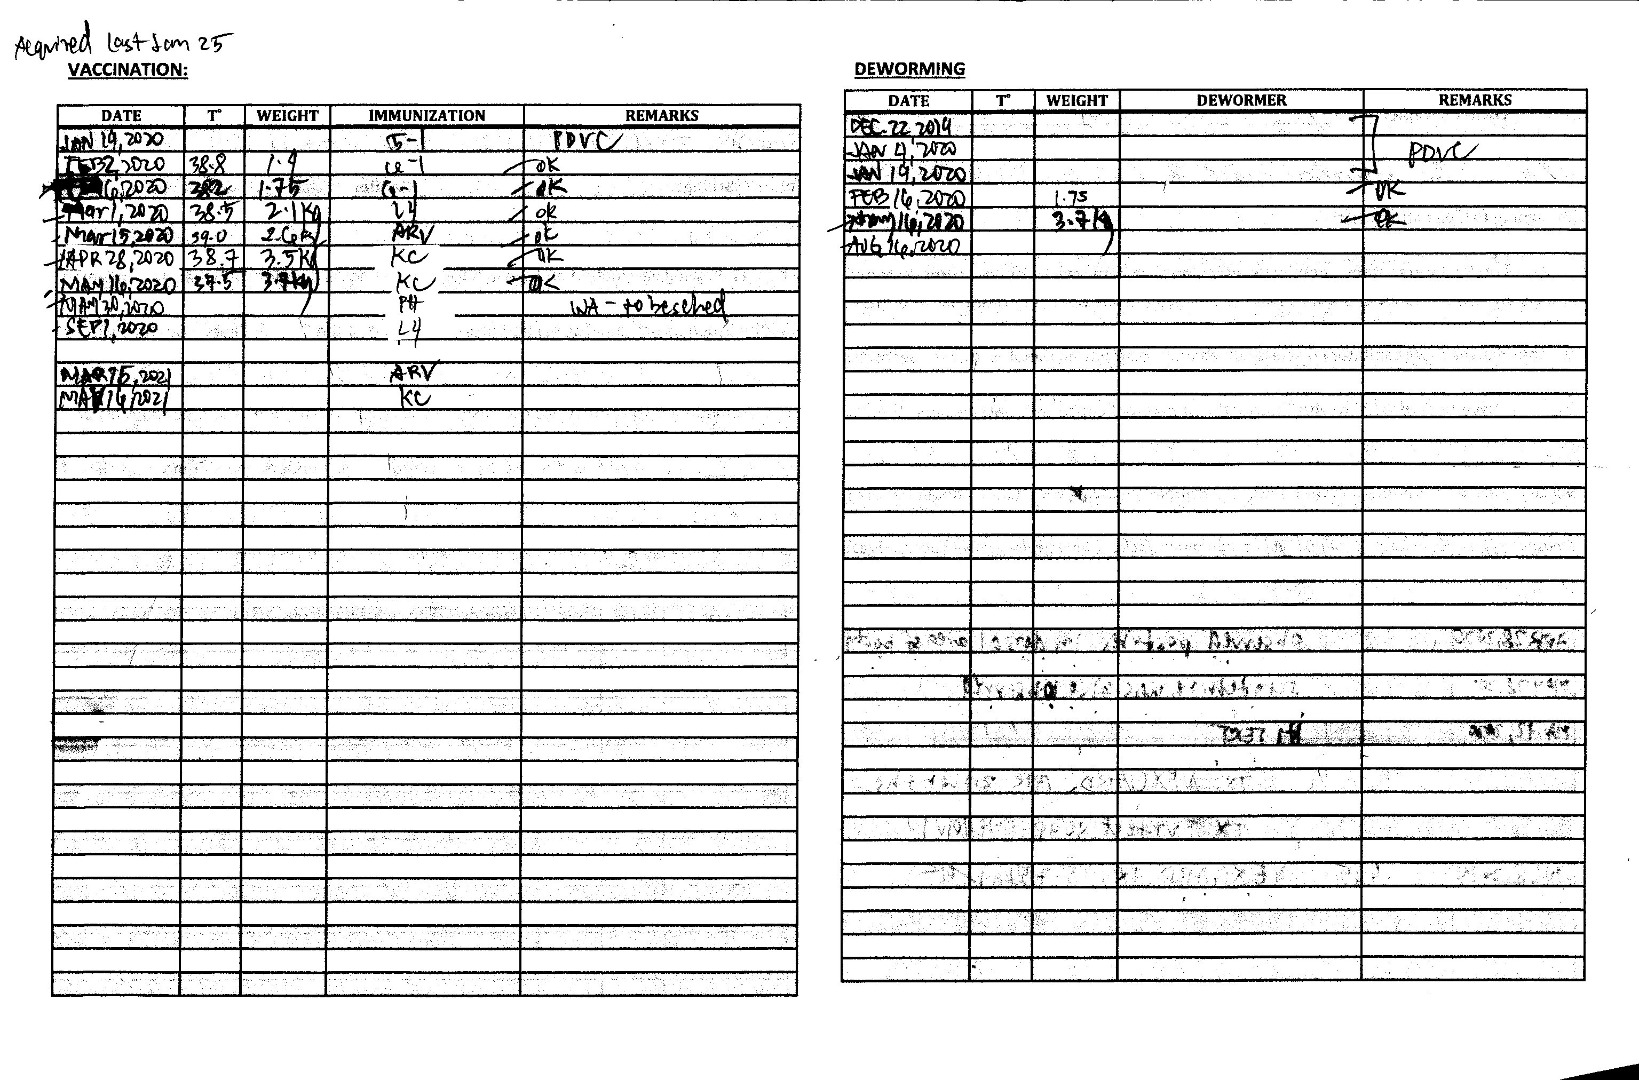 Acquired last Jan 25
VACCINATION:
DATE T° WEIGHT IMMUNIZATION REMARKS
JAN 19, 2020 5-1 PDVC
FEB 2, 2020 38.8 1.9 OK
16, 2020 38.2 1.75 OK
Mar 1, 2020 38.5 2.1 Kg L4 OK
Mar 15, 2020 39.0 2.6 kg ARV OK
APR 28, 2020 38.7 3.5 Kg KC OK
MAY 16, 2020 37.5 3.7 kg KC OK
MAY 30, 2020 PH NA - to be sched
SEP 1, 2020 L4
MAR 15, 2021 ARV
MAY 16, 2021 KC
DEWORMING
DATE T° WEIGHT DEWORMER REMARKS
DEC. 22, 2019
JAN 4, 2020 PDVC
JAN 19, 2020
FEB 16, 2020 1.75 OK
May 16, 2020 3.7 Kg OK
AUG 16, 2020